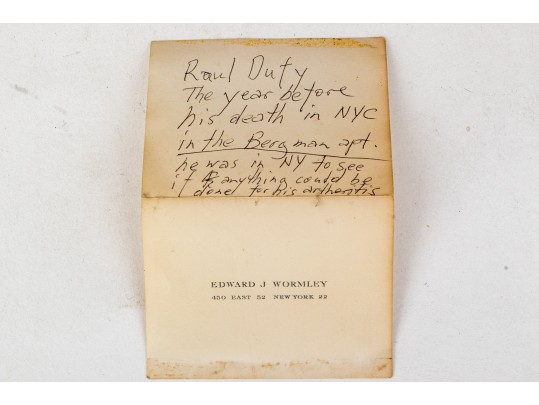 Raul Dufy
The year before
his death in NYC
in the Bergman apt.
he was in NY to see
if anything could be
done for his arthritis
EDWARD J WORMLEY
450 EAST 52 NEW YORK 22